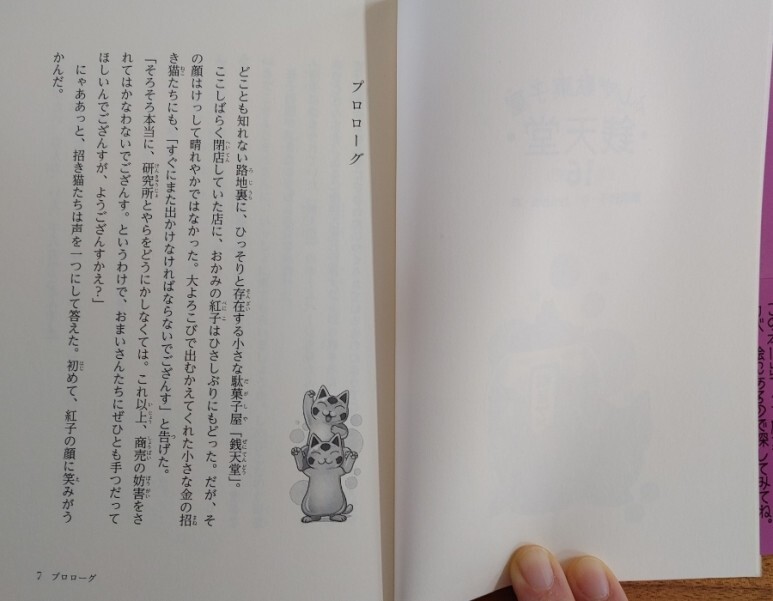 プロローグ
どことも知れない路地裏に、ひっそりと存在する小さな駄菓子屋「銭天堂」。
ここしばらく閉店していた店に、おかみの紅子はひさしぶりにもどった。だが、そ
の顔はけっして晴れやかではなかった。大よろこびで出むかえてくれた小さな金の招
き猫たちにも、「すぐにまた出かけなければならないでござんす」と告げた。
「そろそろ本当に、研究所とやらをどうにかしなくては。これ以上、商売の妨害をさ
れてはかなわないでござんす。というわけで、おまいさんたちにぜひとも手つだって
ほしいんでござんすが、ようござんすかえ？」
にゃああっと、招き猫たちは声を一つにして答えた。初めて、紅子の顔に笑みがう
かんだ。
7 プロローグ